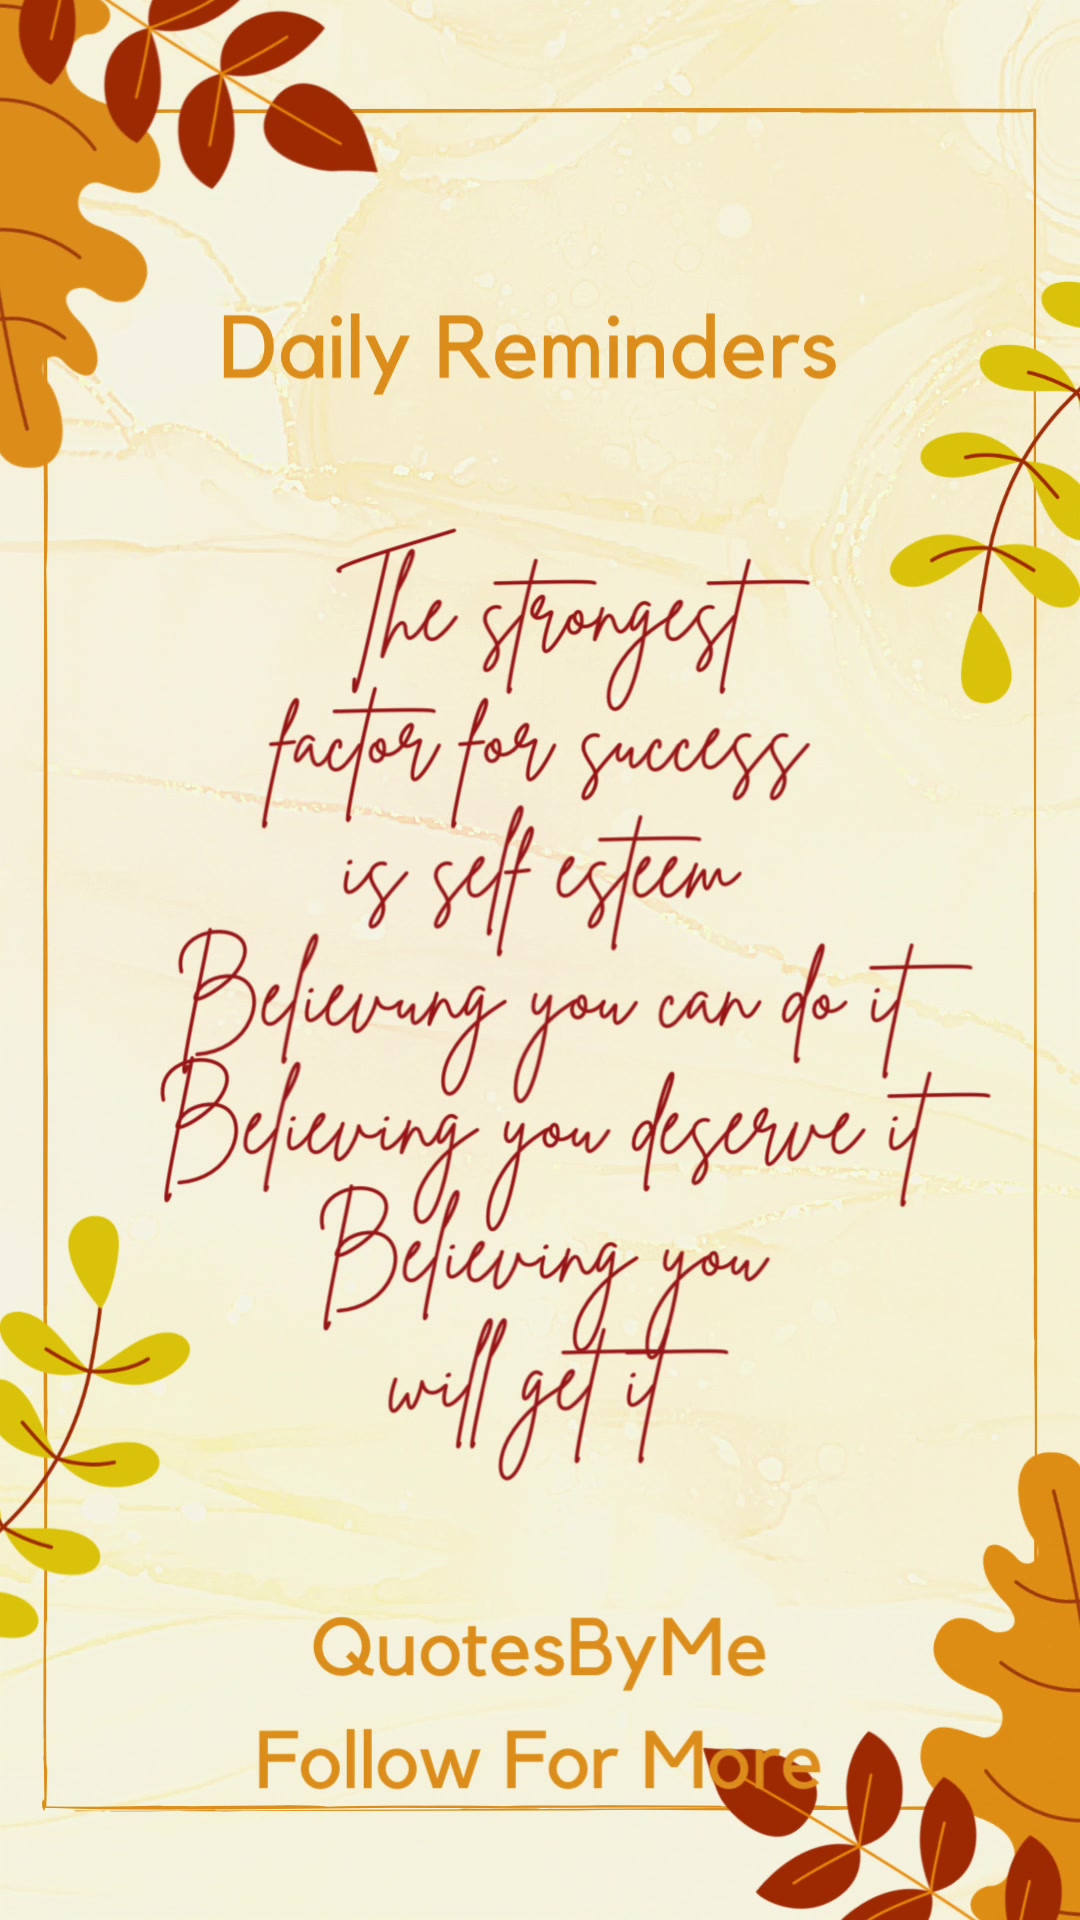 Daily Reminders
The strongest
factor for success
is self esteem
Believung you can do it
Believing you deserve it
Believing you
will get it
QuotesByMe
Follow For More